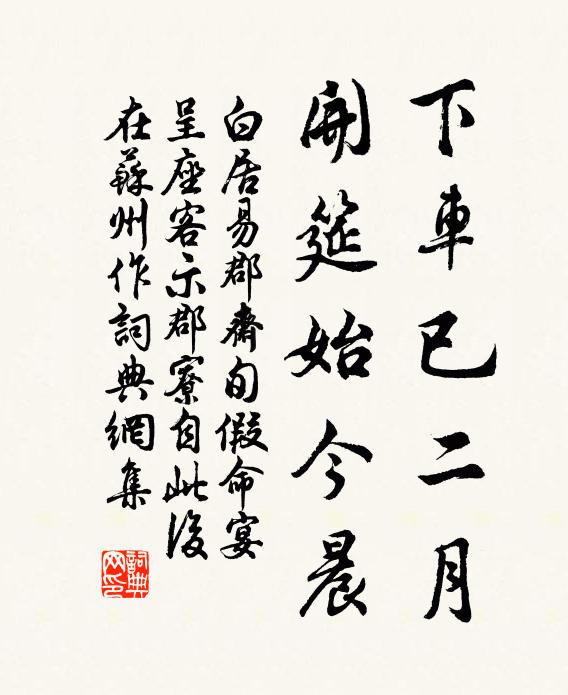 下車已二月
開筵始今晨
白居易郡齋旬假命宴
呈座客示郡寮自此後
在蘇州作詞典網集
詞典
网印